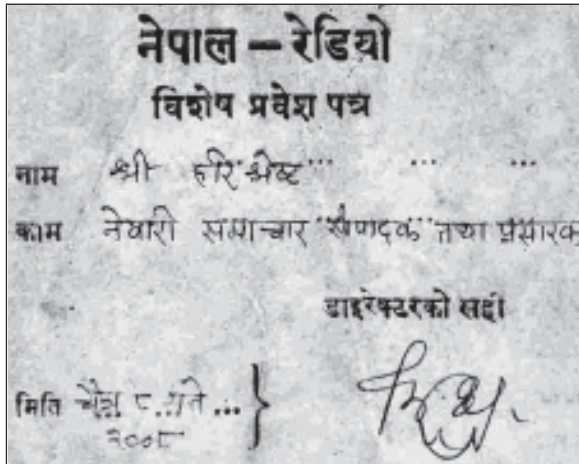 नेपाल – रेडियो
विशेष प्रवेश पत्र
नाम श्री हरि श्रेष्ट ... ... ...
काम नेवारी समाचार संपादक तथा प्रसारक
डाइरेक्टरको सही
मिति चैत्र ८ गते ...
२००८